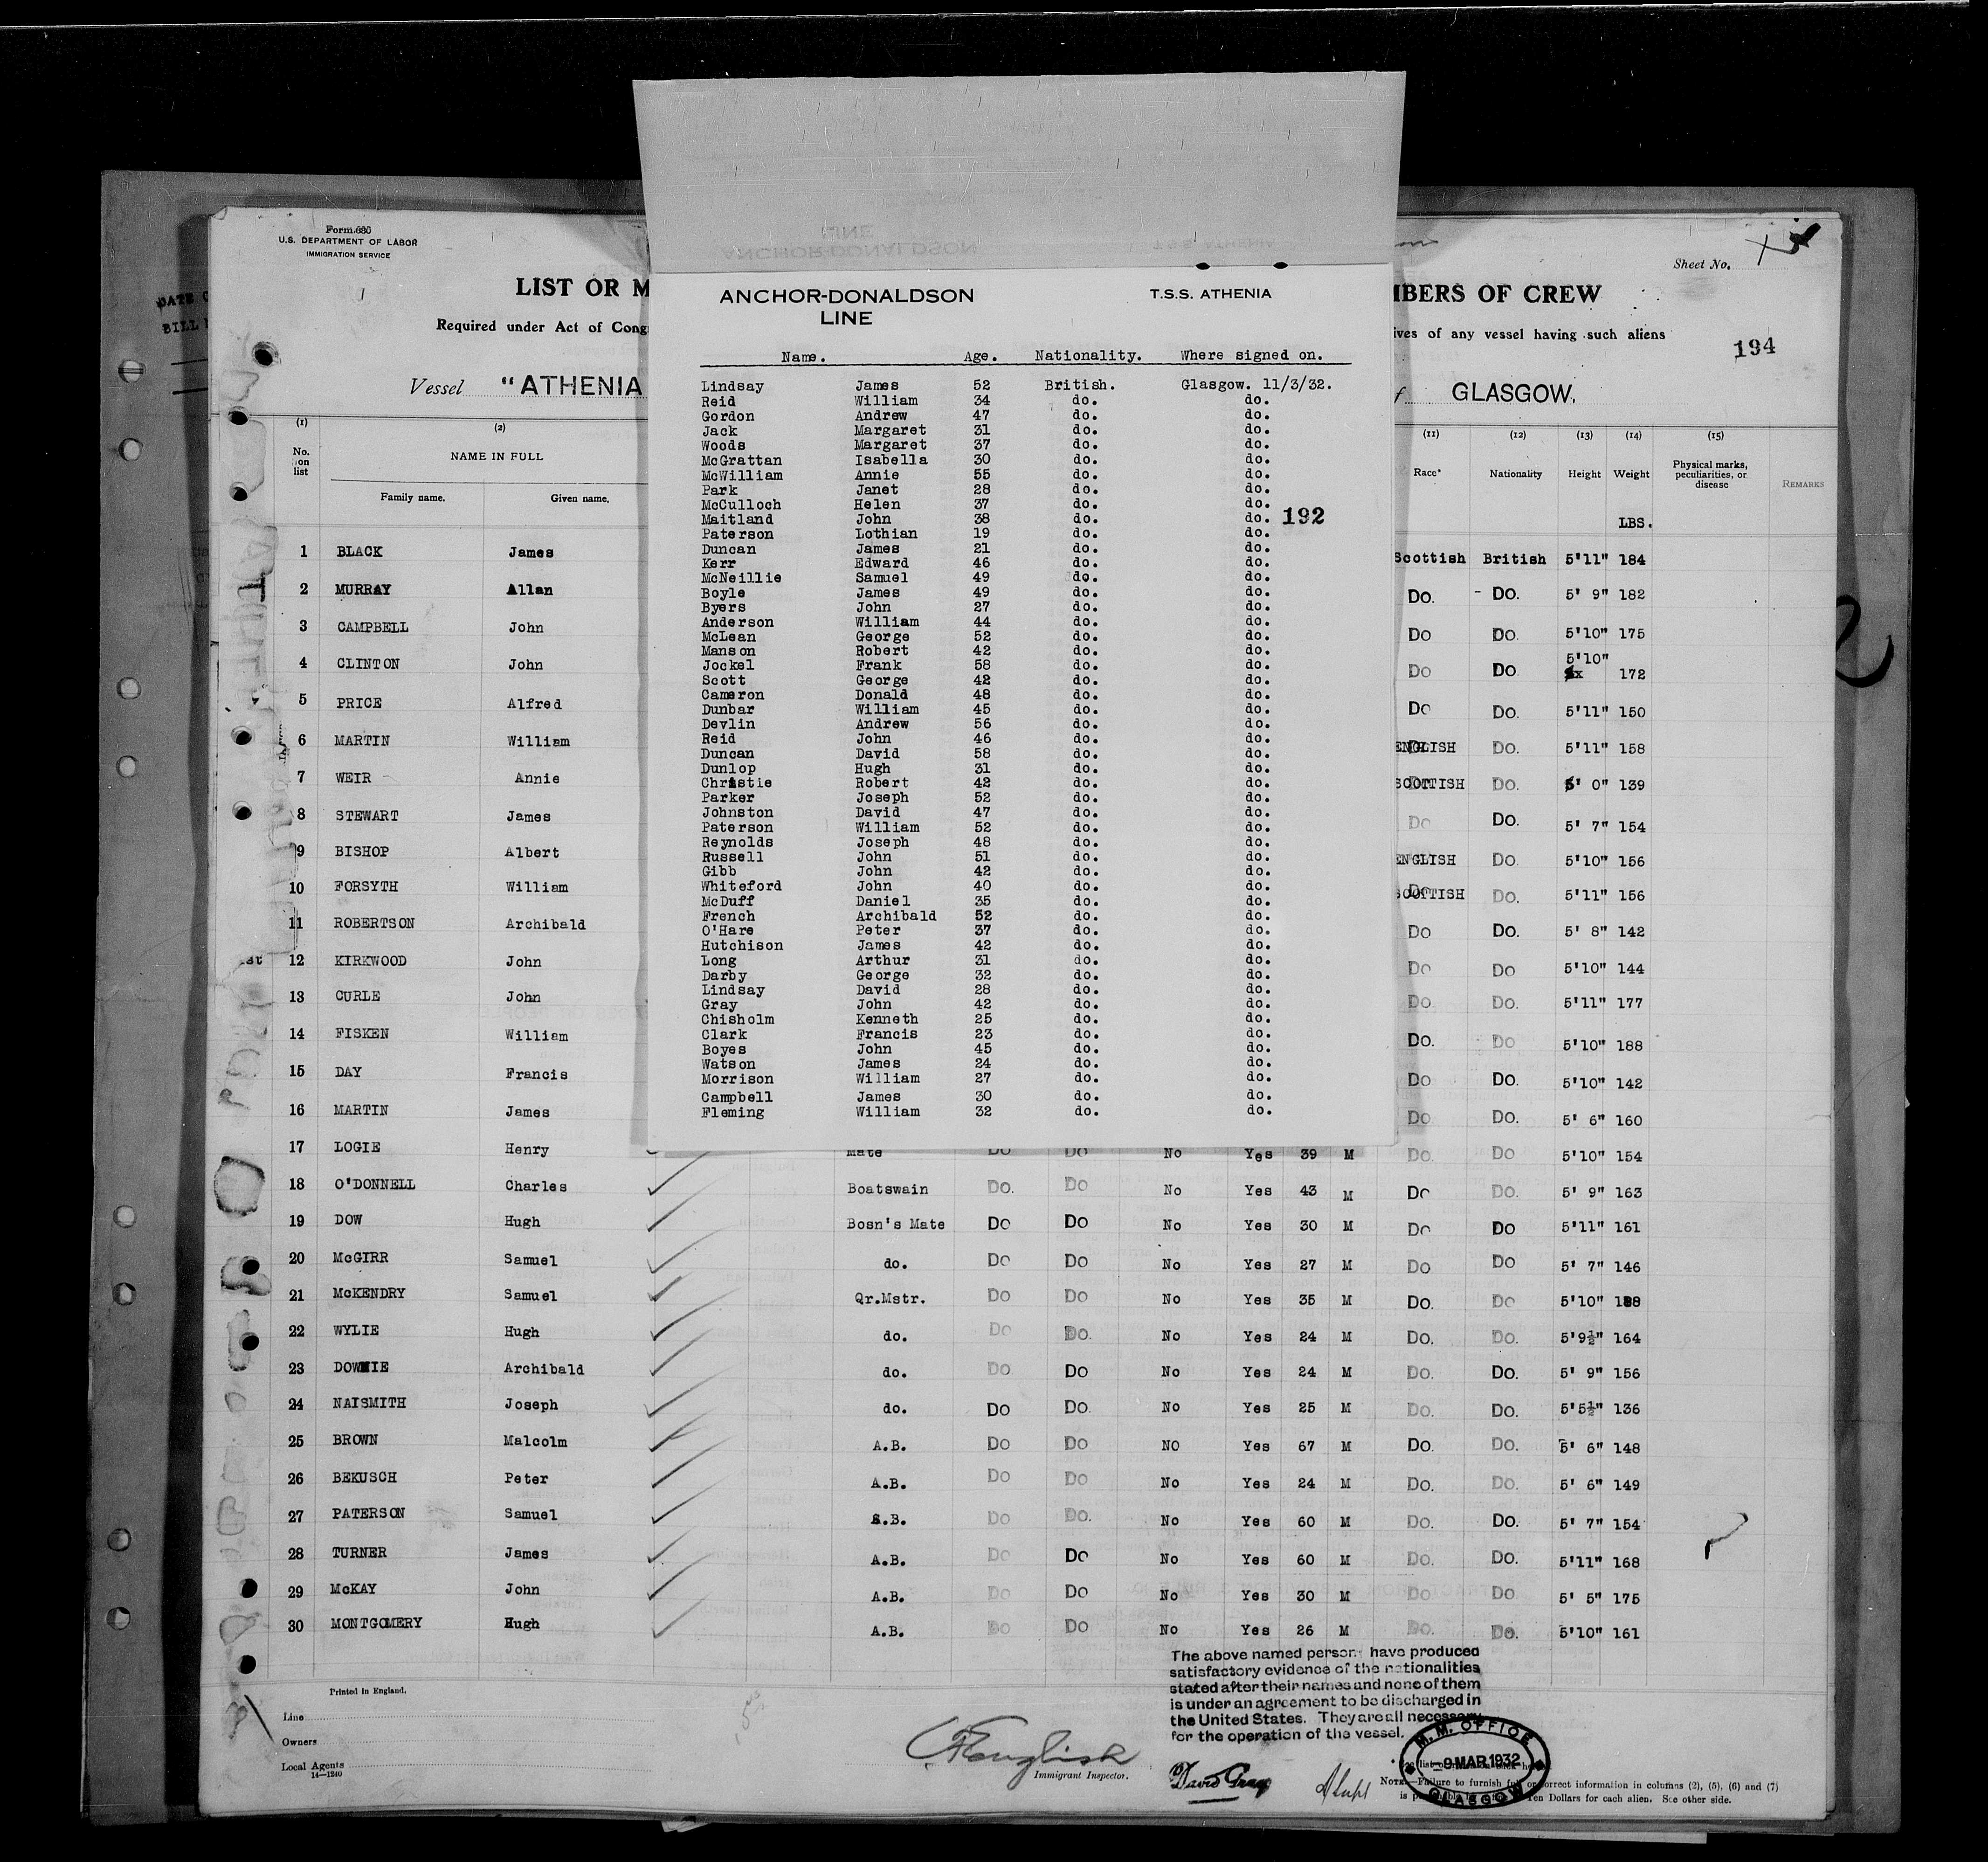 Form 680
U.S. DEPARTMENT OF LABOR
IMMIGRATION SERVICE
Sheet No.
LIST OR M
MBERS OF CREW
Required under Act of Cong
ives of any vessel having such aliens
194
Vessel "ATHENIA
GLASGOW.
ANCHOR-DONALDSON
LINE
T.S.S. ATHENIA
Name. Age. Nationality. Where signed on.
Lindsay James 52 British. Glasgow. 11/3/32.
Reid William 34 do. do.
Gordon Andrew 47 do. do.
Jack Margaret 31 do. do.
Woods Margaret 37 do. do.
McGrattan Isabella 30 do. do.
McWilliam Annie 55 do. do.
Park Janet 28 do. do.
McCulloch Helen 37 do. do.
Maitland John 38 do. do. 192
Paterson Lothian 19 do. do.
Duncan James 21 do. do.
Kerr Edward 46 do. do.
McNeillie Samuel 49 do. do.
Boyle James 49 do. do.
Byers John 27 do. do.
Anderson William 44 do. do.
McLean George 52 do. do.
Manson Robert 42 do. do.
Jockel Frank 58 do. do.
Scott George 42 do. do.
Cameron Donald 48 do. do.
Dunbar William 45 do. do.
Devlin Andrew 56 do. do.
Reid John 46 do. do.
Duncan David 58 do. do.
Dunlop Hugh 31 do. do.
Christie Robert 42 do. do.
Parker Joseph 52 do. do.
Johnston David 47 do. do.
Paterson William 52 do. do.
Reynolds Joseph 48 do. do.
Russell John 51 do. do.
Gibb John 42 do. do.
Whiteford John 40 do. do.
McDuff Daniel 35 do. do.
French Archibald 52 do. do.
O'Hare Peter 37 do. do.
Hutchison James 42 do. do.
Long Arthur 31 do. do.
Darby George 32 do. do.
Lindsay David 28 do. do.
Gray John 42 do. do.
Chisholm Kenneth 25 do. do.
Clark Francis 23 do. do.
Boyes John 45 do. do.
Watson James 24 do. do.
Morrison William 27 do. do.
Campbell James 30 do. do.
Fleming William 32 do. do.
(1) (2) (11) (12) (13) (14) (15)
No. on list NAME IN FULL Race* Nationality Height Weight Physical marks, peculiarities, or disease REMARKS
Family name. Given name. LBS.
1 BLACK James Scottish British 5'11" 184
2 MURRAY Allan Do. Do. 5' 9" 182
3 CAMPBELL John Do Do. 5'10" 175
4 CLINTON John Do Do 5'10" 172
5 PRICE Alfred Do Do. 5'11" 150
6 MARTIN William ENGLISH Do. 5'11" 158
7 WEIR Annie SCOTTISH Do. 5' 0" 139
8 STEWART James Do Do. 5' 7" 154
9 BISHOP Albert ENGLISH Do. 5'10" 156
10 FORSYTH William SCOTTISH Do. 5'11" 156
11 ROBERTSON Archibald Do Do. 5' 8" 142
12 KIRKWOOD John Do Do 5'10" 144
13 CURLE John Do. Do. 5'11" 177
14 FISKEN William Do. Do 5'10" 188
15 DAY Francis Do Do. 5'10" 142
16 MARTIN James Do Do. 5' 6" 160
17 LOGIE Henry Mate Do Do No Yes 39 M Do. Do 5'10" 154
18 O'DONNELL Charles Boatswain Do. Do No Yes 43 M Do Do. 5' 9" 163
19 DOW Hugh Bosn's Mate Do Do No Yes 30 M Do Do 5'11" 161
20 McGIRR Samuel do. Do Do No Yes 27 M Do Do 5' 7" 146
21 McKENDRY Samuel Qr.Mstr. Do Do No Yes 35 M Do. Do 5'10" 188
22 WYLIE Hugh do. Do Do. No Yes 24 M Do. Do. 5'9½" 164
23 DOWNIE Archibald do. Do Do No Yes 24 M Do. Do. 5' 9" 156
24 NAISMITH Joseph do. Do Do. No Yes 25 M Do. Do. 5'5½" 136
25 BROWN Malcolm A.B. Do Do NO Yes 67 M Do. Do. 5' 6" 148
26 BEKUSCH Peter A.B. Do Do No Yes 24 M Do. Do. 5' 6" 149
27 PATERSON Samuel A.B. Do Do. No Yes 60 M Do. Do. 5' 7" 154
28 TURNER James A.B. Do Do No Yes 60 M Do. Do. 5'11" 168
29 McKAY John A.B. Do Do No Yes 30 M Do Do 5' 5" 175
30 MONTGOMERY Hugh A.B. Do Do No Yes 26 M Do. Do. 5'10" 161
The above named person have produced
satisfactory evidence of the nationalities
stated after their names and none of them
is under an agreement to be discharged in
the United States. They are all necessary
for the operation of the vessel.
Printed in England.
Line
Owners
Local Agents
14—1240
Immigrant Inspector.
David Gray
M.M. OFFICE
9 MAR 1932
GLASGOW
NOTE.—Failure to furnish full or correct information in columns (2), (5), (6) and (7)
is Ten Dollars for each alien. See other side.